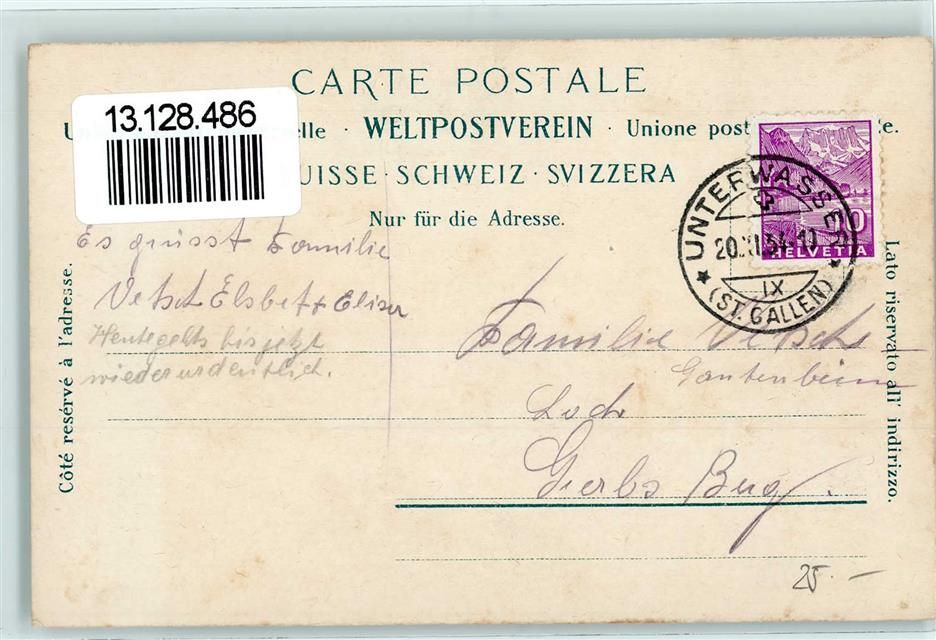 CARTE POSTALE
13.128.486
elle · WELTPOSTVEREIN · Unione post e.
UISSE · SCHWEIZ · SVIZZERA
Nur für die Adresse.
UNTERWASSER
20.XI.54-10
IX
(ST. GALLEN)
0
HELVETIA
Es grüsst Familie
Vetsch Elsbet + Elisa
Heute gehts bis jetzt
wieder ordentlich.
Familie Vetsch
Gantenbein
Loch
Grabs Berg.
Côté resérvé à l'adresse.
Lato riservato all' indirizzo.
25.-